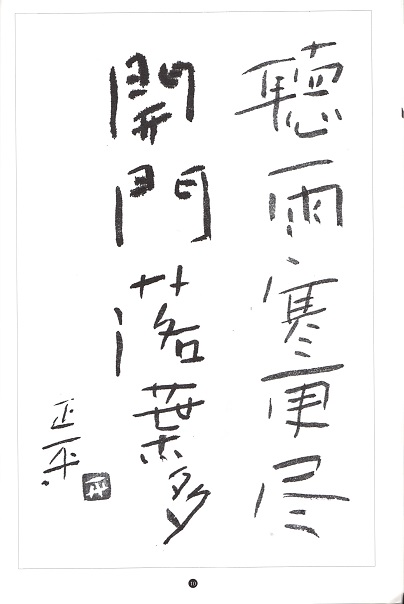 聽雨寒更尽
開門落葉多
正平
10